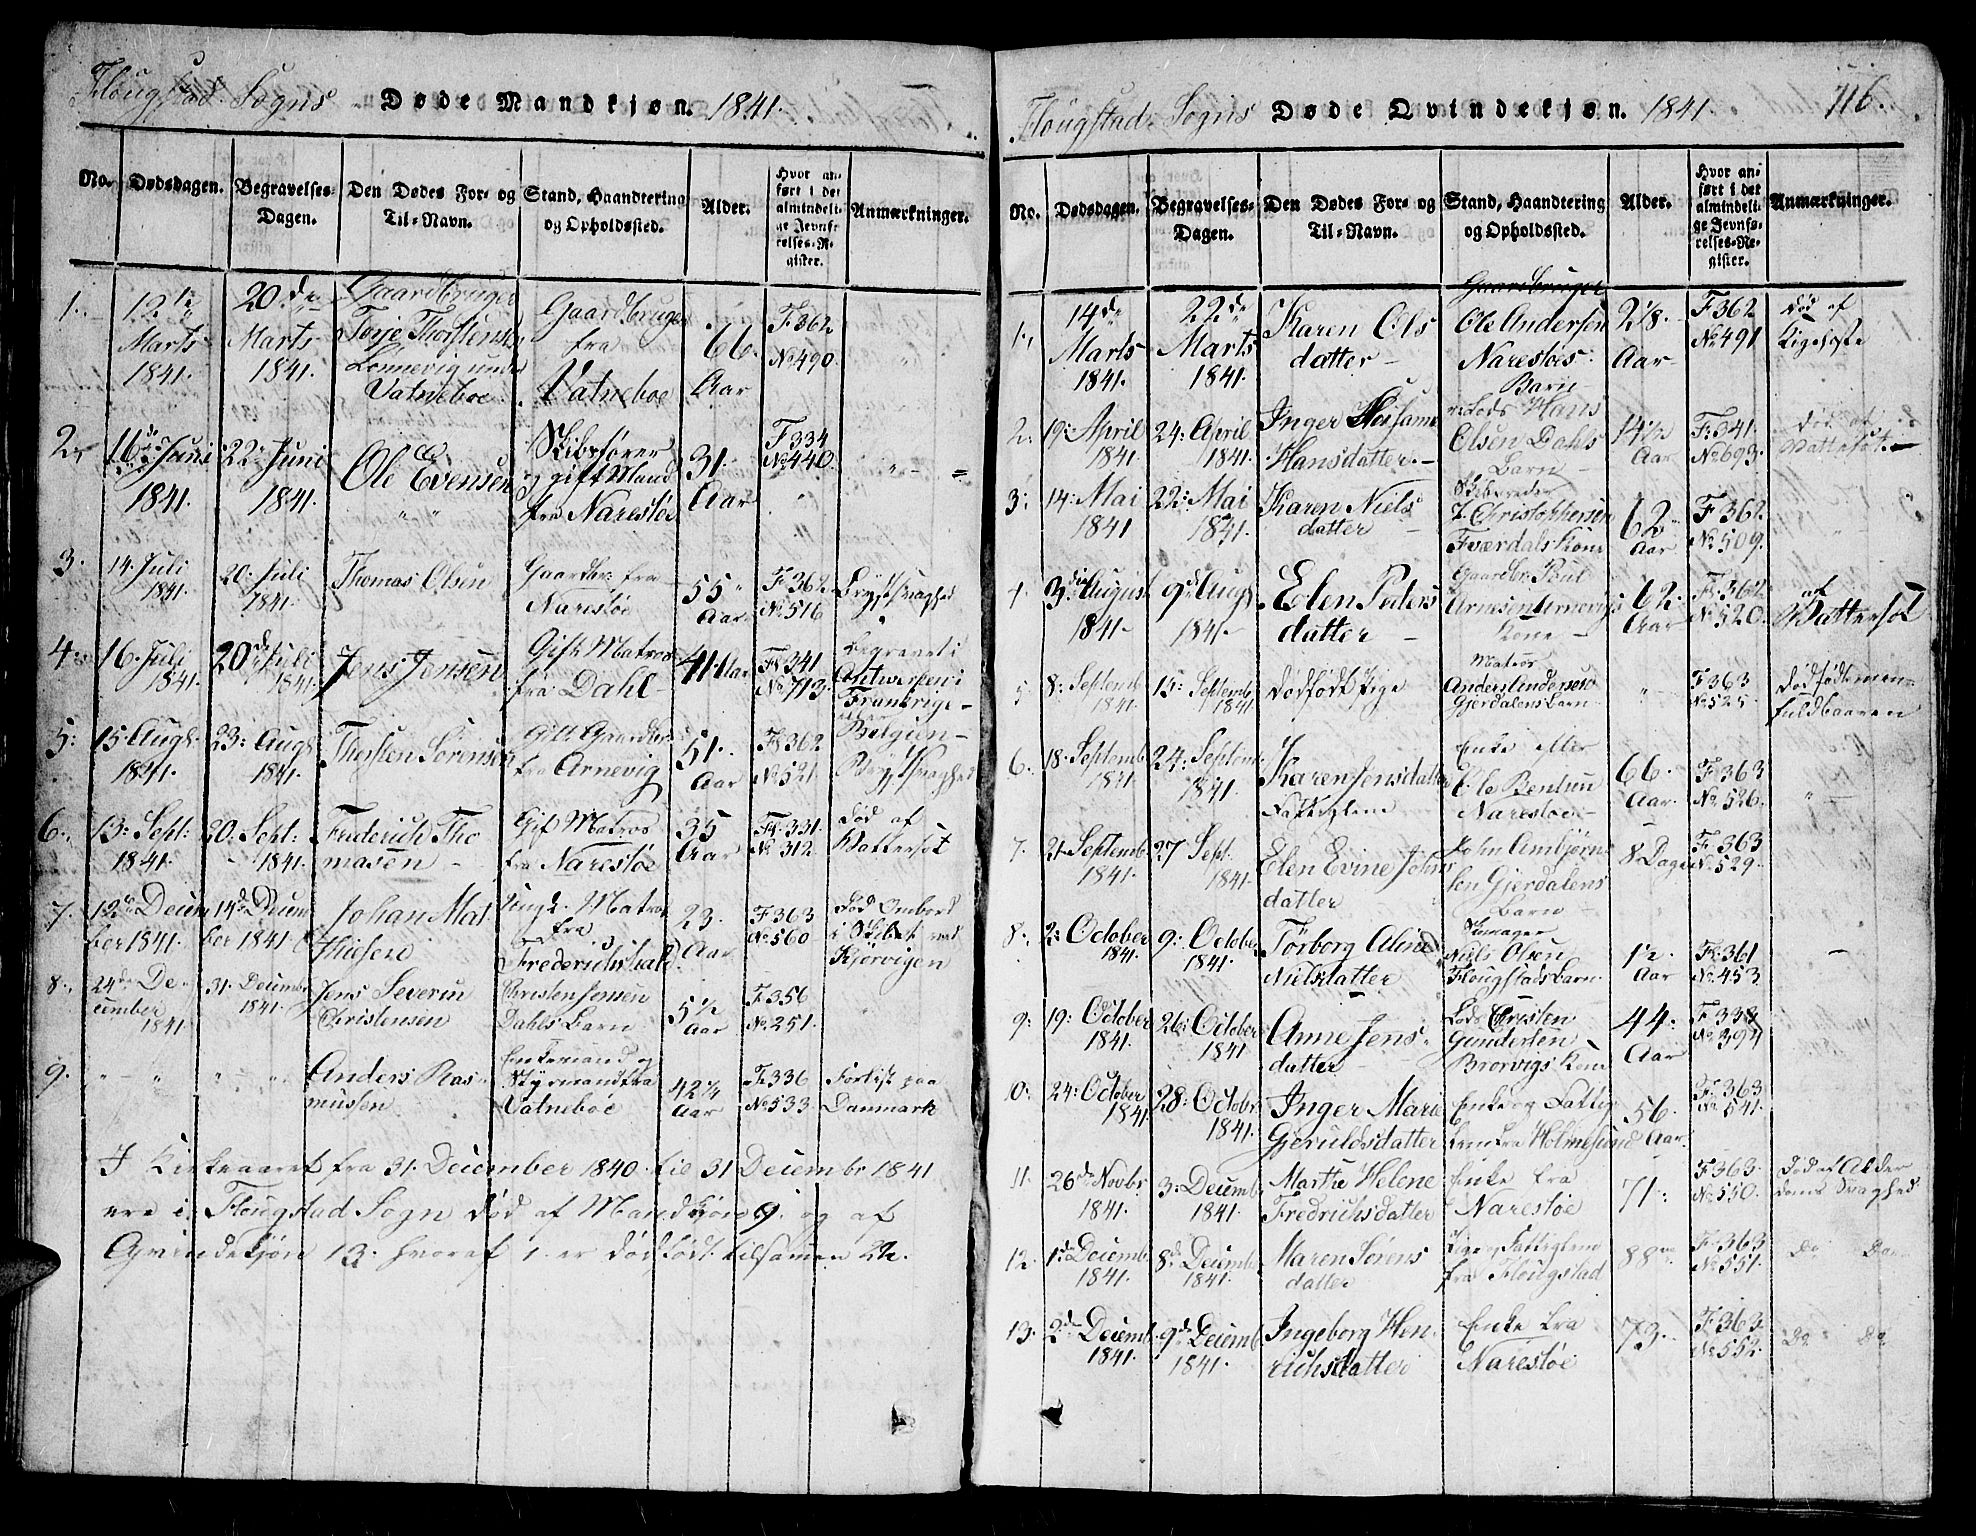 Flougstad Sogns Døde Mandkjøn. 1841.
No. Dødsdagen. Begravelses-Dagen. Den Dødes For- og Til-Navn. Stand, Haandtering og Opholdssted. Alder. Hvor anført i det almindelige Jevnførelses-Register. Anmærkninger.
1. 12te Marts 1841. 20de Marts 1841. Gaardbruger Torje Thorstensen Lonnevig under Vatneboe. Gaardbruger fra Vatneboe 66 Aar F. 362 No 490.
2. 16de Juni 1841. 22 Juni 1841. Ole Evensen Skibsfører og gift Mand fra Narestøe 31. Aar F 334 No 440
3. 14 Juli 1841. 20 Juli 1841. Thomas Olsen Gaardbr. fra Narestøe 55 Aar F. 362 No 516 Brystsvaghed
4. 16. Juli 1841. 20de Juli 1841. Jens Jensen Gift Matros fra Dahl 41 Aar Fl 341 No 713. Begravet i Antwerpen i Frankrige eller Belgien
5. 15 Augt. 1841. 23: Augt. 1841. Thorsten Sørensen Gift Gaardbr. fra Arnevig 51. Aar Fl 362 No 521. Brystsvaghed
6. 13: Sept: 1841. 20. Sept: 1841. Frederich Thomasen Gift Matros fra Narestøe 35 Aar Fl. 331. No 312. død af Wattersot
7. 12te December 1841. 14de December 1841 Johan Mathiesen Ungk. Matros fra Frederichshald. 23. Aar F. 363 No 560 død Ombord i Skibet ved Kjørvigen
8. 24de December 1841 31. Decembr 1841. Jens Severin Christensen Christen Jensen Dahls Barn 5 1/2 Aar F. 356 No 251.
9. Anders Rasmussen Enkemand og Styrmand fra Vatnebøe 42 1/4 Aar F. 336 No 533. Forlist paa Danmark
I Kirkeaaret fra 31. December 1840. til 31 Decembr 1841
ere i Flougstad Sogn død af Mandkjøn 9. og af
Qvindekjøn 13. hvoraf 1. er dødfødt tilsamen 22.
Flougstad Sogns Døde Qvindekjøn. 1841. 116.
No. Dødsdagen. Begravelses-Dagen. Den Dødes For- og Til-Navn. Stand, Haandtering og Opholdssted. Alder. Hvor anført i det almindelige Jevnførelses-Register. Anmærkninger.
1. 14de Marts 1841. 22de Marts 1841. Karen Olsdatter Gaardbruger Ole Andersen Narestøes Barn 2 1/8 Aar F 362 No 491 død af Kigehoste
2. 19: April 1841 24: April 1841. Inger Hansdatter. Lods Hans Olsen Dahls Barn 14 1/2 Aar F. 341. No 693. død af Wattersot
3. 14: Mai 1841 22: Mai 1841. Karen Nielsdatter Skibsreder Christophersen Kone 62 Aar F 362 No 509.
4. 3die August 1841 9de Augt 1841. Elen Pedersdatter Gaardbr. Poul Arnesen Arnevigs Kone 62. Aar Fl. 362 No 520. af Wattersot
5 8: Septemb 1841. 15: Septemb 1841. dødfødt Pige Matros Anders Andersen Gjerdalens Barn F 363 No 525. dødfødt men fuldbaaren
6. 18. Septemb 1841 24: Septemb 1841. Karen Jensdatter Fattiglem Enke efter Ole Bentsen Narestøe 66. Aar F. 363 No 526.
7. 21. Septemb 1841. 27 Sept. 1841. Elen Evine Johnsdatter John Ambjørnsen Gjerdalens Barn 8 Dage F. 363 No 529.
8. 2: October 1841. 9: October 1841. Torborg Aline Nielsdatter Skomager Niels Olsen Flougstads Barn 1 1/2. Aar Fl. 361 No 453
9. 19: October 1841. 26: October 1841 Anne Jensdatter Lods Christen Gundersen Brorvigs Kone 44: Aar No 394
10. 24: October 1841 28: Octobr 1841. Inger Marie Gjeruldsdatter Enke og Fattiglem fra Holmesund 56. Aar. F. 363 No 541.
11. 26de Novbr 1841. 3: Decemb 1841. Marthe Helene Fredrichsdatter Enke fra Narestøe 71: F. 363. No 550. død af Alderdoms Svaghed
12. 1de Decemb 1841. 8de Decemb 1841. Maren Sørensdatter Fattiglem fra Flougstad 88 F. 363 No 551. Do Do
13. 2de Decemb 1841. 9de Decemb 1841. Ingeborg Henrichsdatter Enke fra Narestøe 73. F. 363 No 552. Do Do